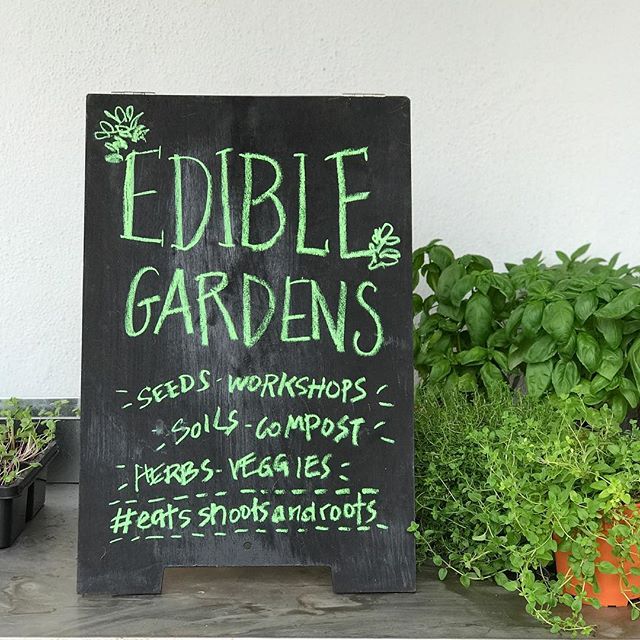 EDIBLE
GARDENS
SEEDS-WORKSHOPS
SOILS-COMPOST
HERBS-VEGGIES
#eatsshootsandroots